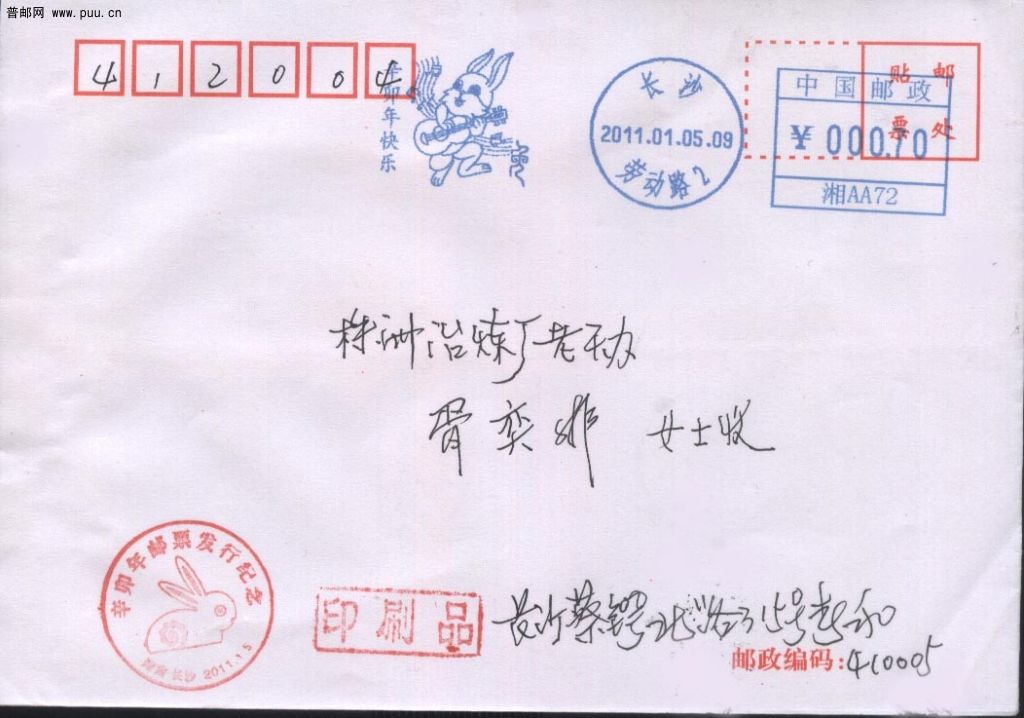 普邮网 www.puu.cn
412004
辛卯年快乐
长沙
2011.01.05.09
劳动路2
贴邮
票处
中国邮政
¥000.70
湘AA72
株洲冶炼厂老干办
女士收
辛卯年邮票发行纪念
湖南长沙 2011.1.5
印刷品
长沙蔡锷北路
邮政编码:410005